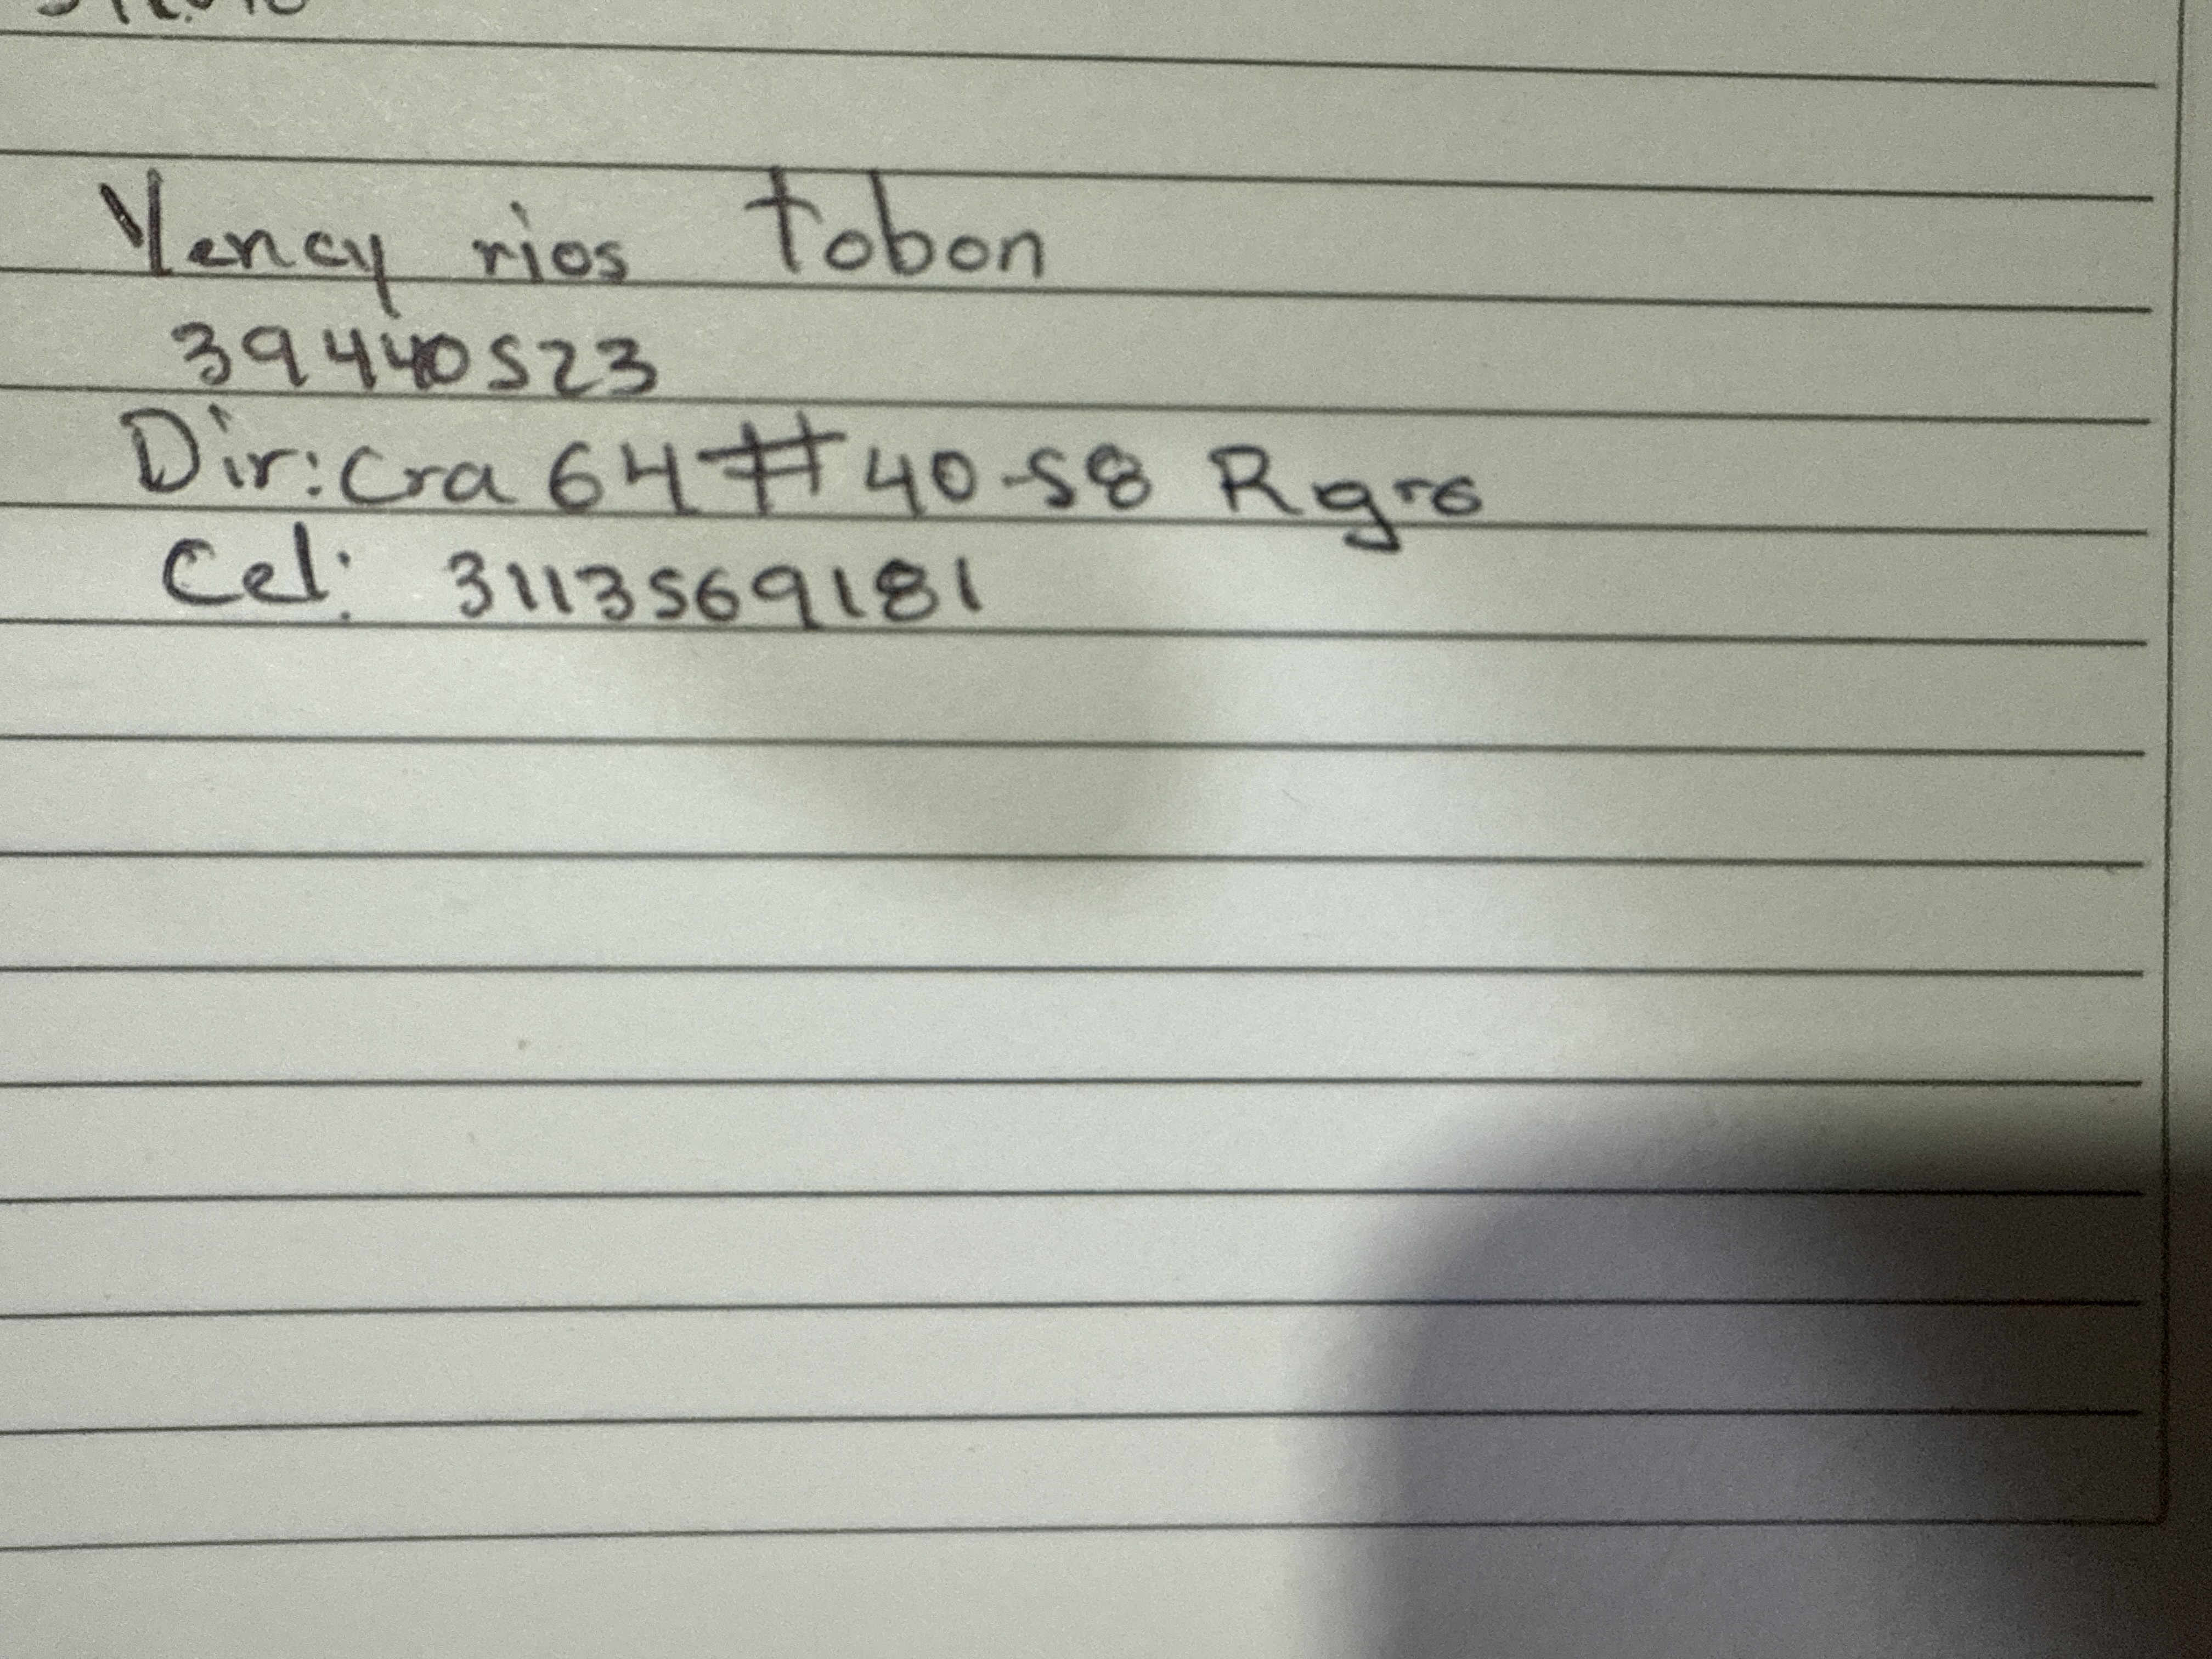 Yency rios tobon
39440523
Dir: Cra 64 # 40-58 Rgro
Cel: 3113569181